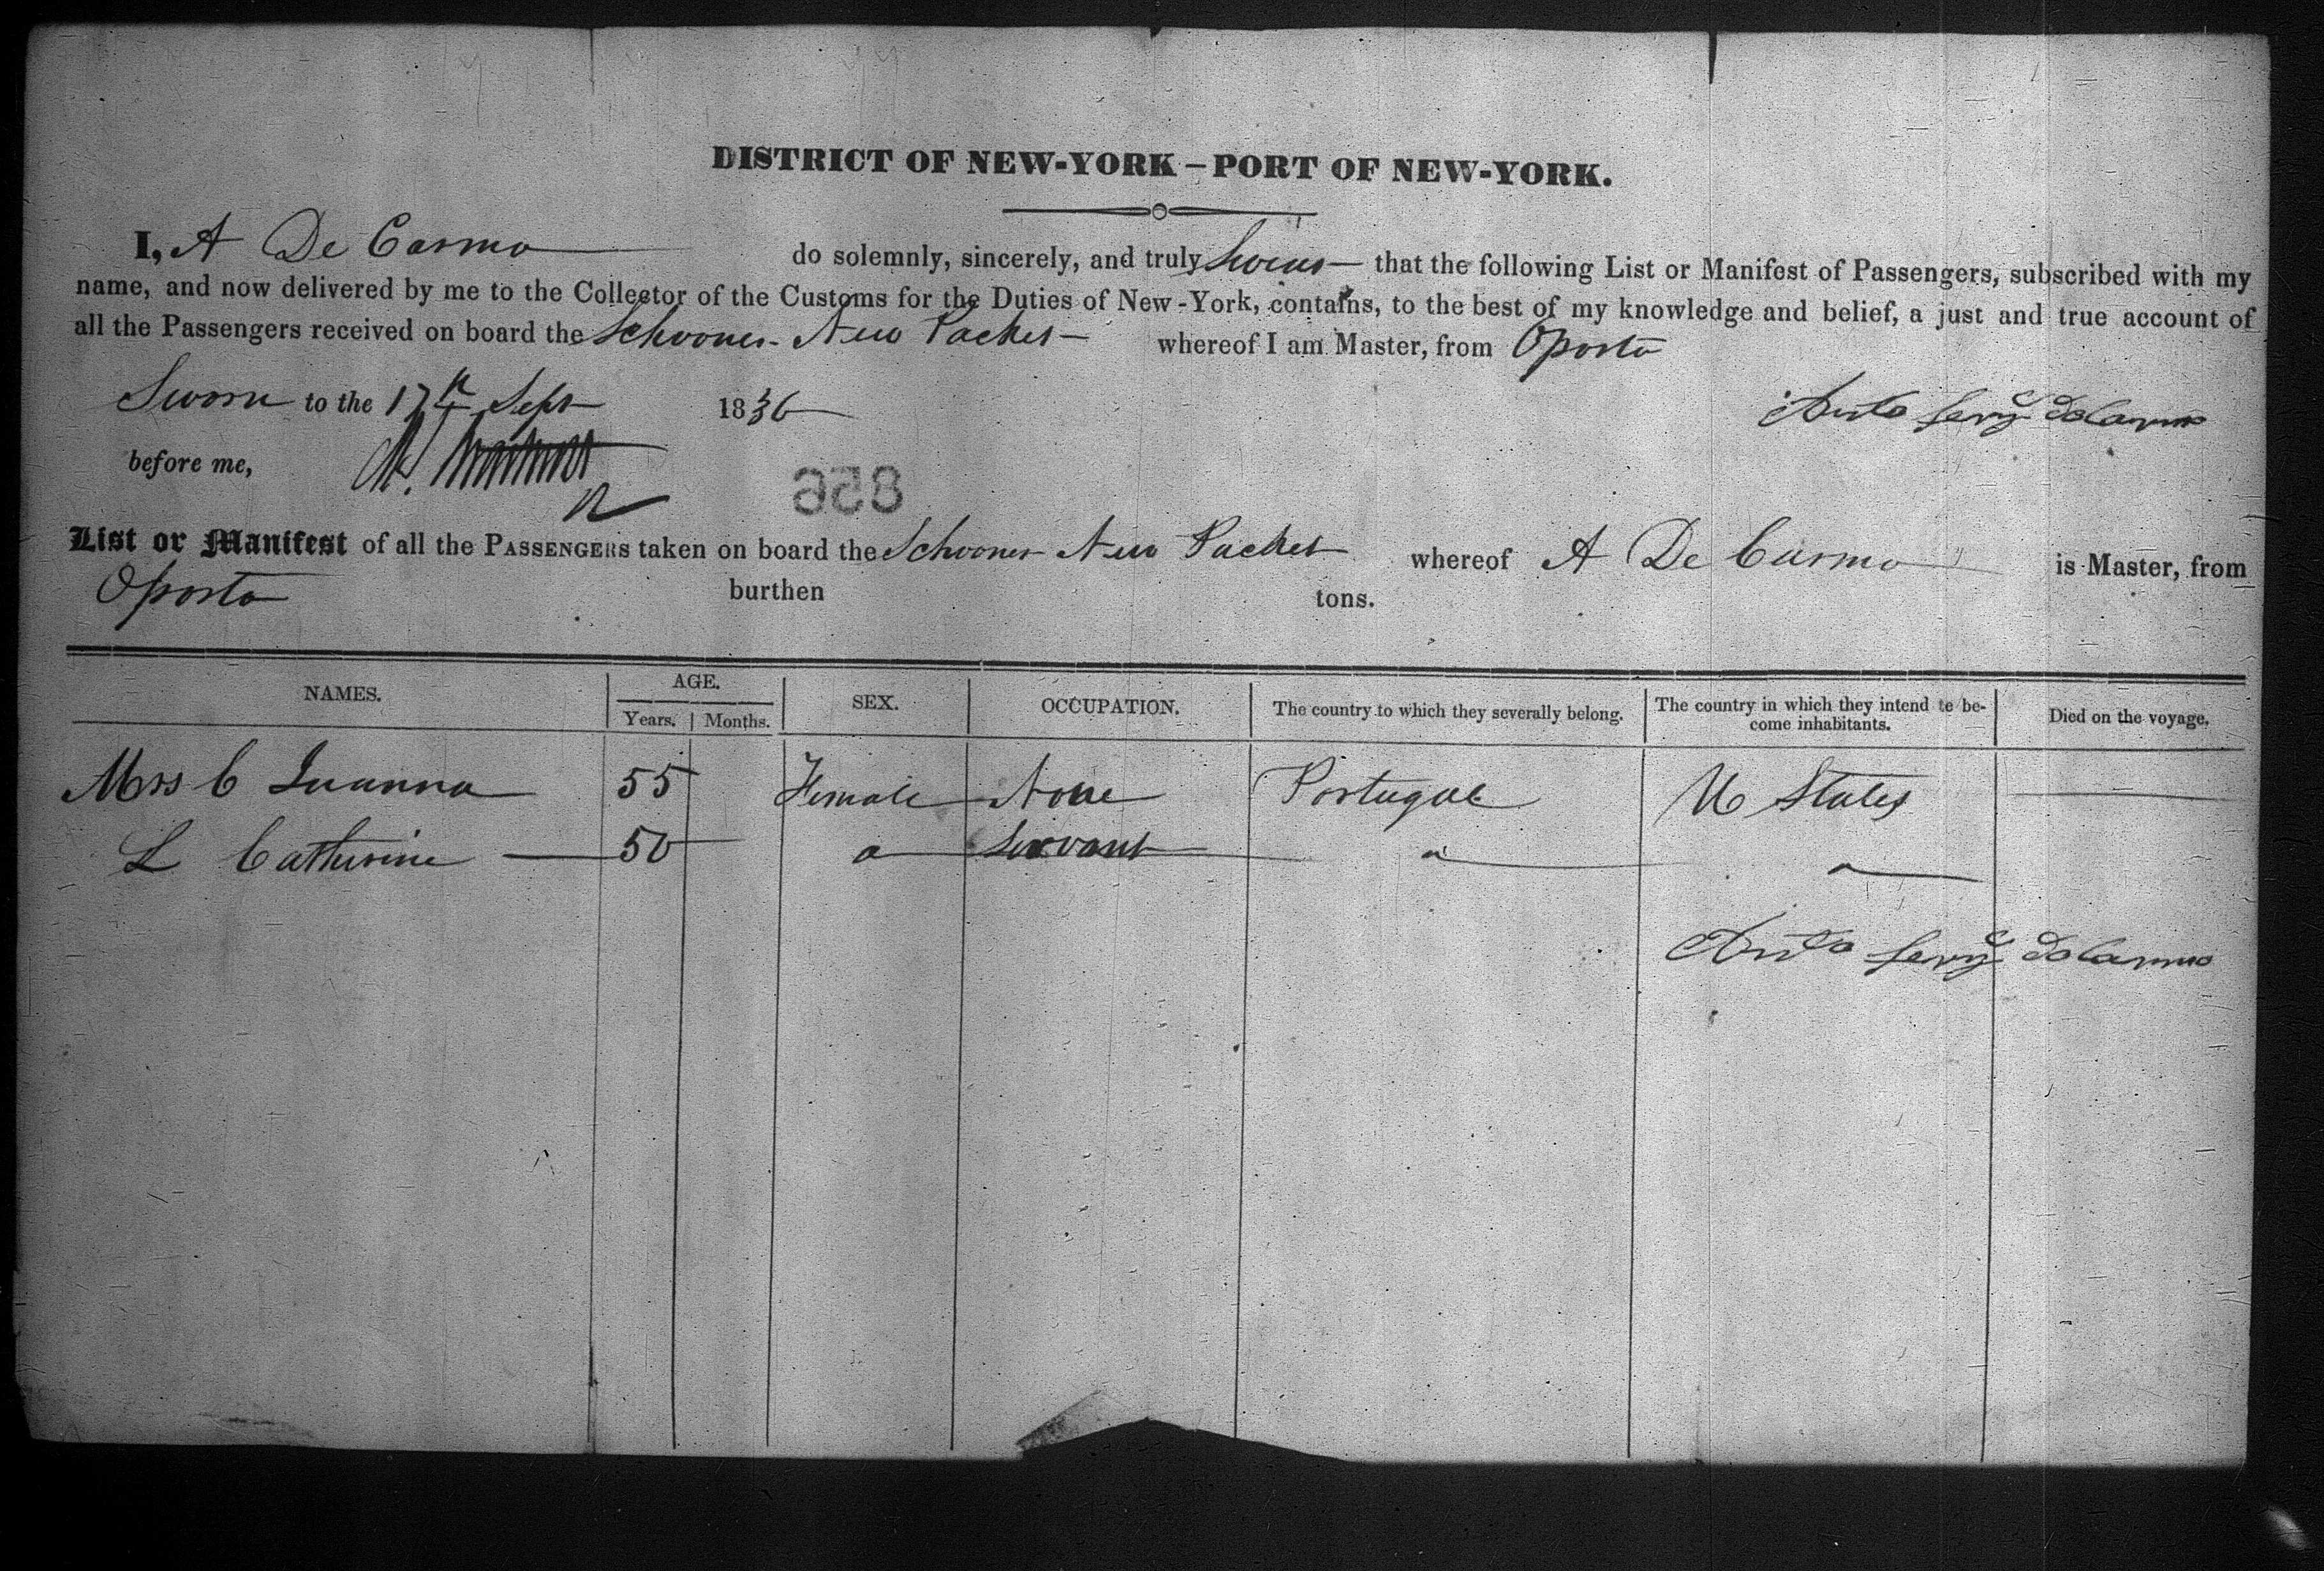 DISTRICT OF NEW-YORK – PORT OF NEW-YORK.
I, A De Carmo do solemnly, sincerely, and truly Swear that the following List or Manifest of Passengers, subscribed with my
name, and now delivered by me to the Collector of the Customs for the Duties of New-York, contains, to the best of my knowledge and belief, a just and true account of
all the Passengers received on board the Schooner New Packet whereof I am Master, from Oporto
Sworn to the 17th Sept 1836
before me,
856
List or Manifest of all the PASSENGERS taken on board the Schooner New Packet whereof A De Carmo is Master, from
Oporto burthen tons.
NAMES. AGE. SEX. OCCUPATION. The country to which they severally belong. The country in which they intend to be- Died on the voyage.
Years. Months. come inhabitants.
Mrs C Juanna 55 Female None Portugal U States
L Catherine 50 " Servant " "